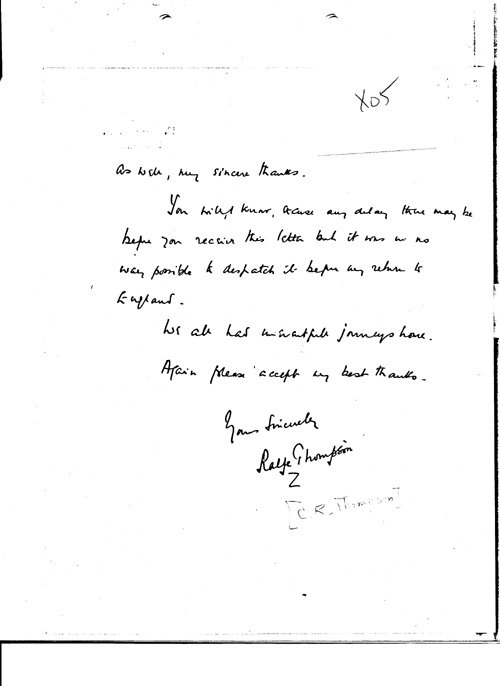 X05
as well, my sincere thanks.
You will, I know, excuse any delay there may be
before you receive this letter but it was in no
way possible to despatch it before my return to
England.
We all had uneventful journeys home.
Again please accept my best thanks.
Yours Sincerely
Ralfe Thompson
[C R. Thompson]